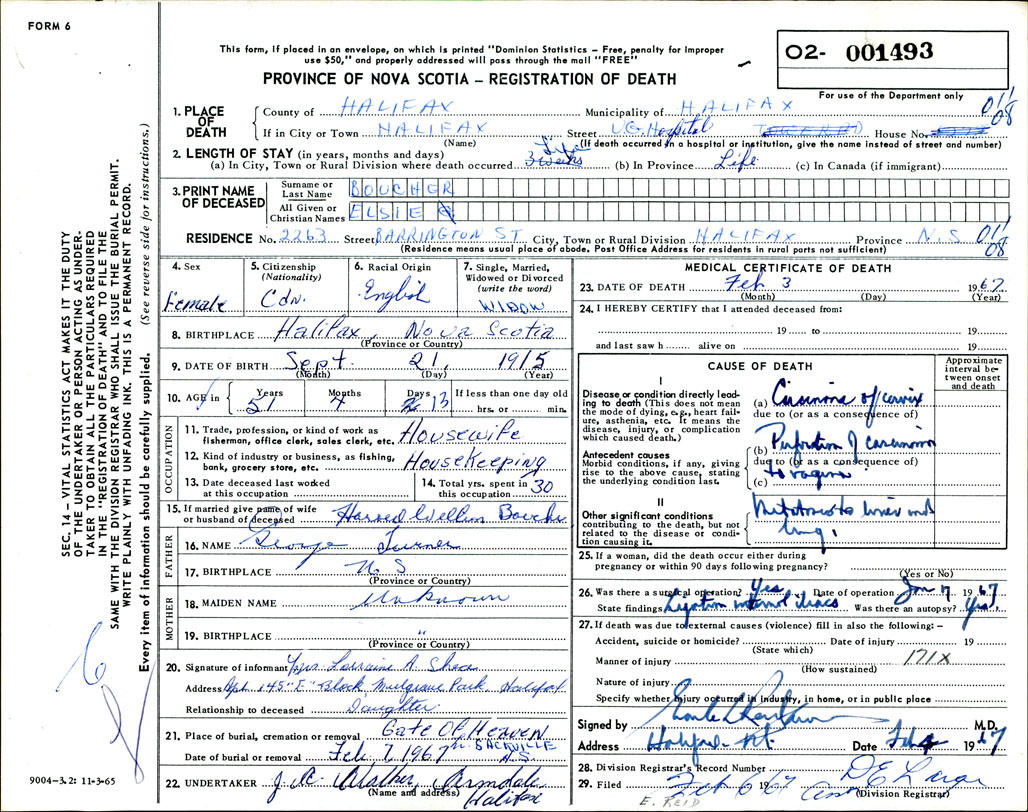 FORM 6
This form, if placed in an envelope, on which is printed "Dominion Statistics – Free, penalty for improper
use $50," and properly addressed will pass through the mail "FREE"
PROVINCE OF NOVA SCOTIA – REGISTRATION OF DEATH
O2- 001493
For use of the Department only
011
08
1. PLACE OF DEATH
County of HALIFAX Municipality of HALIFAX
If in City or Town HALIFAX Street V.G. Hospital House No.
(Name) (If death occurred in a hospital or institution, give the name instead of street and number)
2. LENGTH OF STAY (in years, months and days)
(a) In City, Town or Rural Division where death occurred Life 3 weeks (b) In Province Life (c) In Canada (if immigrant)
3. PRINT NAME OF DECEASED
Surname or Last Name BOUCHER
All Given or Christian Names ELSIE
RESIDENCE No. 2263 Street BARRINGTON ST. City, Town or Rural Division HALIFAX Province N.S. 011
08
(Residence means usual place of abode. Post Office Address for residents in rural parts not sufficient)
4. Sex
Female
5. Citizenship
(Nationality)
Cdn.
6. Racial Origin
English
7. Single, Married,
Widowed or Divorced
(write the word)
WIDOW
8. BIRTHPLACE Halifax, Nova Scotia
(Province or Country)
9. DATE OF BIRTH Sept. 21, 1915
(Month) (Day) (Year)
10. AGE in
Years 51
Months 4
Days 13
If less than one day old
hrs. or min.
OCCUPATION
11. Trade, profession, or kind of work as
fisherman, office clerk, sales clerk, etc. Housewife
12. Kind of industry or business, as fishing,
bank, grocery store, etc. Housekeeping
13. Date deceased last worked
at this occupation
14. Total yrs. spent in
this occupation 30
15. If married give name of wife
or husband of deceased Harold William Boucher
FATHER
16. NAME George Turner
17. BIRTHPLACE N.S
(Province or Country)
MOTHER
18. MAIDEN NAME Unknown
19. BIRTHPLACE "
(Province or Country)
20. Signature of informant Mrs. Lorraine A. Shea
Address Apt 145 "E" Block Mulgrave Park, Halifax
Relationship to deceased Daughter
21. Place of burial, cremation or removal Gate Of Heaven
Date of burial or removal Feb. 7, 1967 SACKVILLE N.S.
22. UNDERTAKER J. A. Walker, Armdale
(Name and address) Halifax
MEDICAL CERTIFICATE OF DEATH
23. DATE OF DEATH Feb 3 1967
(Month) (Day) (Year)
24. I HEREBY CERTIFY that I attended deceased from:
19 to 19
and last saw h alive on 19
CAUSE OF DEATH
Approximate interval between onset and death
I
Disease or condition directly leading
to death (This does not mean
the mode of dying, e.g., heart failure,
asthenia, etc. It means the
disease, injury, or complication
which caused death.)
(a) Carcinoma of cervix
due to (or as a consequence of)
Antecedent causes
Morbid conditions, if any, giving
rise to the above cause, stating
the underlying condition last.
(b) Perforation of carcinoma
due to (or as a consequence of)
to vagina
(c)
II
Other significant conditions
contributing to the death, but not
related to the disease or condition
causing it.
Metastases to liver and
lung.
25. If a woman, did the death occur either during
pregnancy or within 90 days following pregnancy?
(Yes or No)
26. Was there a surgical operation? Yes Date of operation Jan 7 1967
State findings Ligation internal iliacs Was there an autopsy? Yes.
27. If death was due to external causes (violence) fill in also the following: –
Accident, suicide or homicide? Date of injury 19
(State which)
Manner of injury 171X
(How sustained)
Nature of injury
Specify whether injury occurred in industry, in home, or in public place
Signed by M.D.
Address Halifax Date Feb 4 1967
28. Division Registrar's Record Number
29. Filed Feb 6 67
(Division Registrar)
E. REID
SEC. 14 – VITAL STATISTICS ACT MAKES IT THE DUTY
OF THE UNDERTAKER OR PERSON ACTING AS UNDERTAKER
TO OBTAIN ALL THE PARTICULARS REQUIRED
IN THE "REGISTRATION OF DEATH" AND TO FILE THE
SAME WITH THE DIVISION REGISTRAR WHO SHALL ISSUE THE BURIAL PERMIT.
WRITE PLAINLY WITH UNFADING INK. THIS IS A PERMANENT RECORD.
Every item of information should be carefully supplied. (See reverse side for instructions.)
9004–3.2: 11-3-65